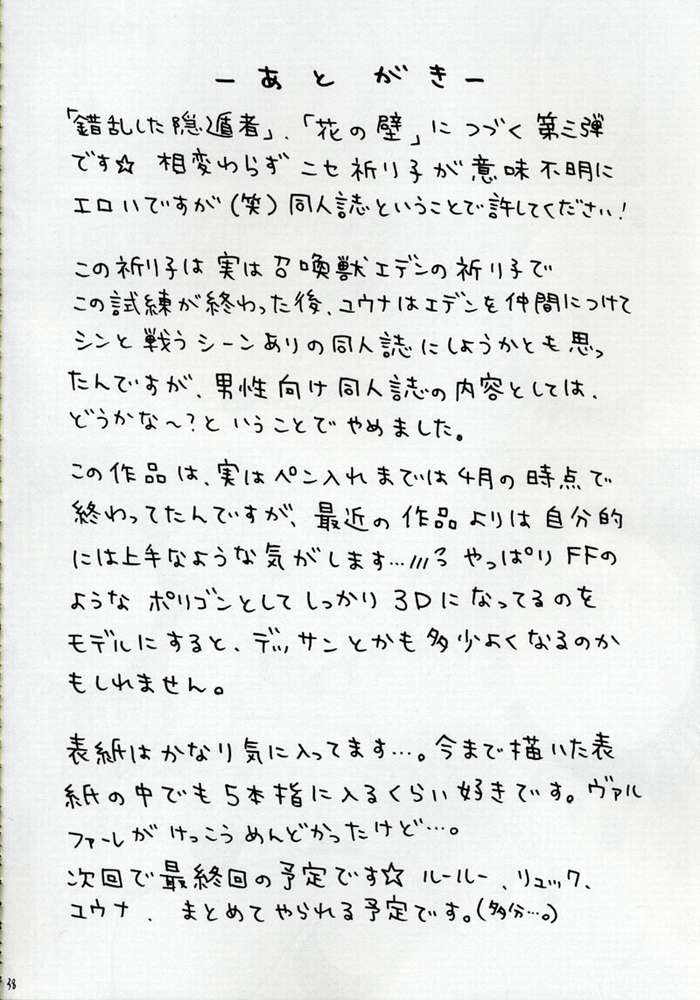 －あとがき－
「錯乱した隠遁者」、「花の壁」につづく第三弾
です☆ 相変わらずニセ祈り子が意味不明に
エロいですが（笑）同人誌ということで許してください！
この祈り子は実は召喚獣エデンの祈り子で
この試練が終わった後、ユウナはエデンを仲間につけて
シンと戦うシーンありの同人誌にしようかとも思っ
たんですが、男性向け同人誌の内容としては、
どうかな～？ということでやめました。
この作品は、実はペン入れまでは4月の時点で
終わってたんですが、最近の作品よりは自分的
には上手なような気がします…///ろ やっぱりFFの
ような ポリゴンとしてしっかり3Dになってるのを
モデルにすると、デッサンとかも多少よくなるのか
もしれません。
表紙はかなり気に入ってます…。今まで描いた表
紙の中でも5本指に入るくらい好きです。ヴァル
ファーレがけっこうめんどかったけど…。
次回で最終回の予定です☆ ルールー、リュック、
ユウナ、まとめてやられる予定です。（多分…。）
38